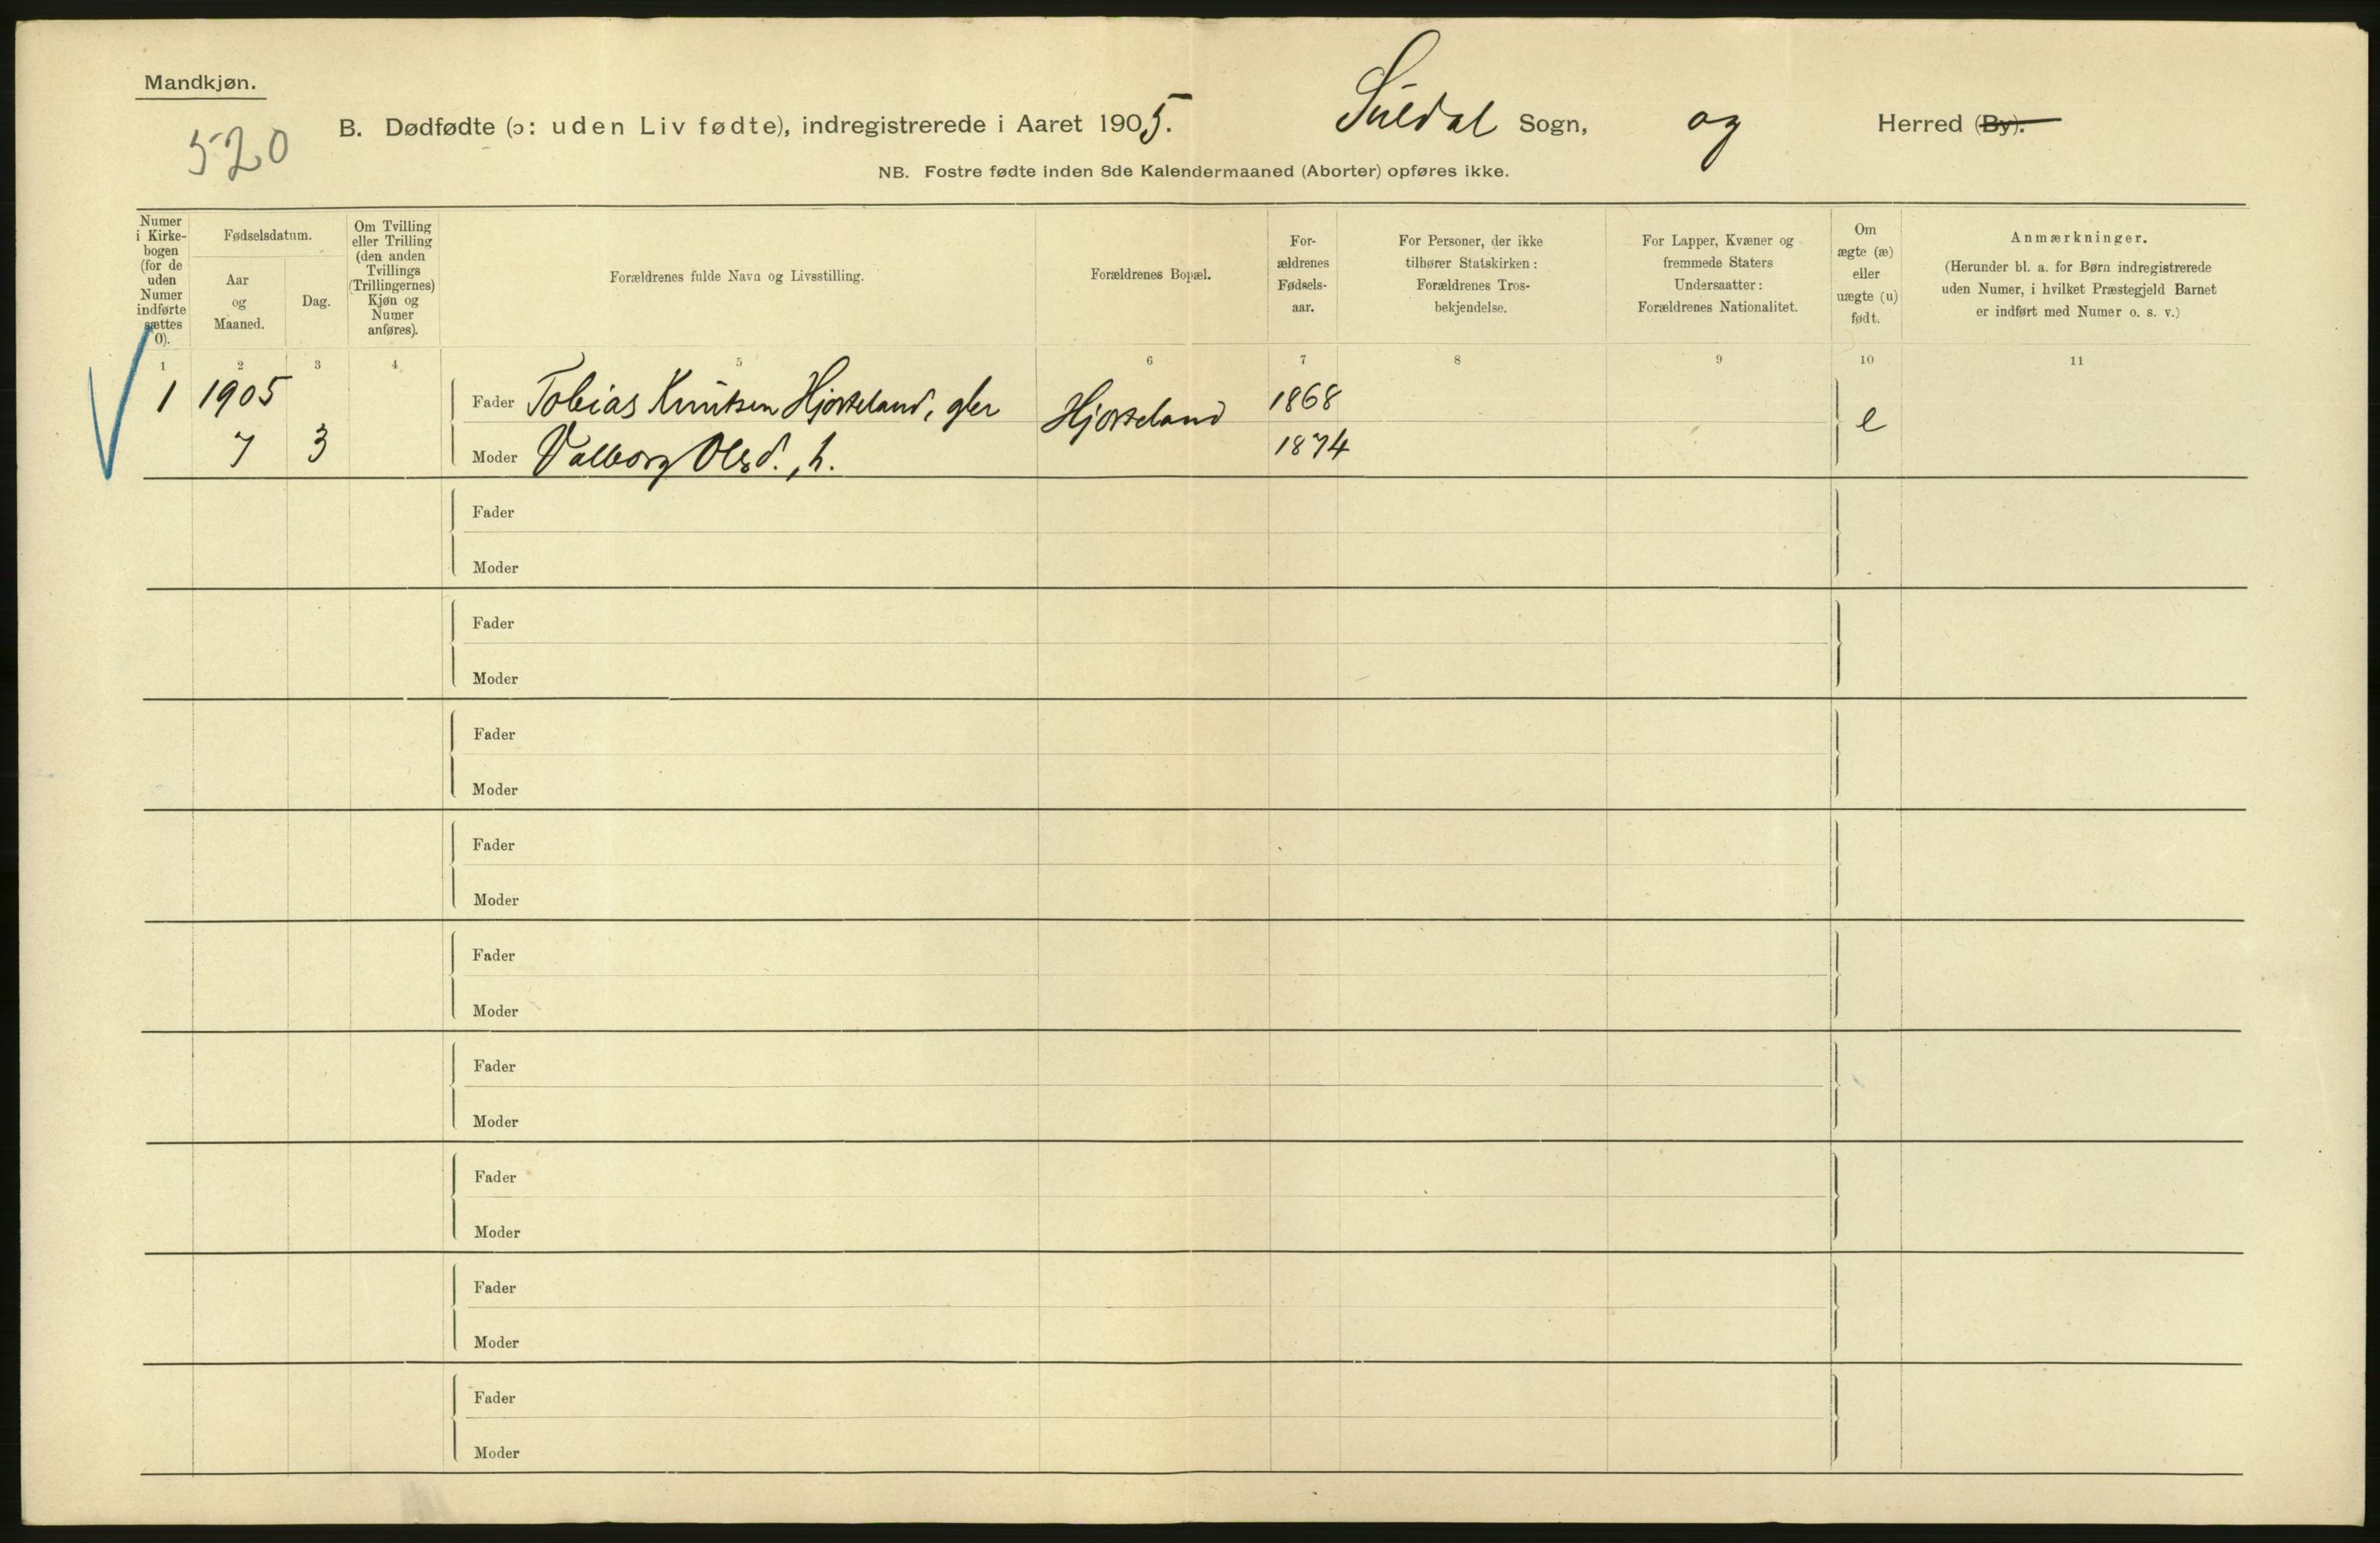 Mandkjøn.
520
B. Dødfødte (ɔ: uden Liv fødte), indregistrerede i Aaret 1905. Suldal Sogn, og Herred (By).
NB. Fostre fødte inden 8de Kalendermaaned (Aborter) opføres ikke.
Numer
i Kirke-
bogen
(for de
uden
Numer
indførte
sættes
0).
Fødselsdatum.
Aar
og
Maaned.
Dag.
Om Tvilling
eller Trilling
(den anden
Tvillings
(Trillingernes)
Kjøn og
Numer
anføres).
Forældrenes fulde Navn og Livsstilling.
Forældrenes Bopæl.
For-
ældrenes
Fødsels-
aar.
For Personer, der ikke
tilhører Statskirken:
Forældrenes Tros-
bekjendelse.
For Lapper, Kvæner og
fremmede Staters
Undersaatter:
Forældrenes Nationalitet.
Om
ægte (æ)
eller
uægte (u)
født.
Anmærkninger.
(Herunder bl. a. for Børn indregistrerede
uden Numer, i hvilket Præstegjeld Barnet
er indført med Numer o. s. v.)
1 2 3 4 5 6 7 8 9 10 11
1 1905 Fader Tobias Knutsen Hjorteland, gbr Hjorteland 1868 e
7 3 Moder Valborg Olsd., h. 1874
Fader
Moder
Fader
Moder
Fader
Moder
Fader
Moder
Fader
Moder
Fader
Moder
Fader
Moder
Fader
Moder
Fader
Moder